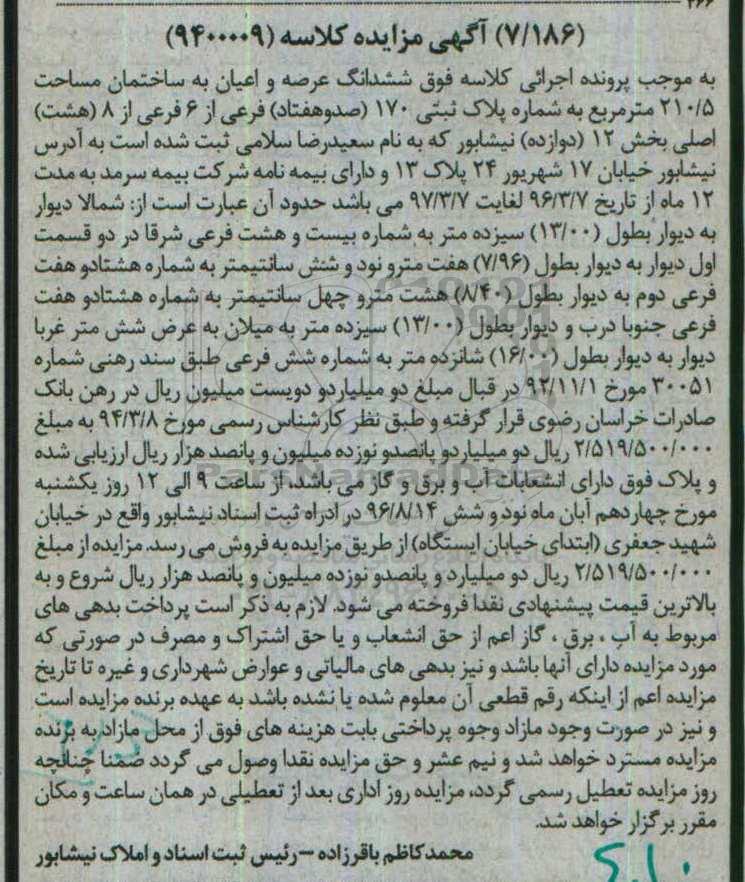 ۲۶۶
(۷/۱۸۶) آگهی مزایده کلاسه (۹۴۰۰۰۰۹)
به موجب پرونده اجرائی کلاسه فوق ششدانگ عرصه و اعیان به ساختمان مساحت
۲۱۰/۵ مترمربع به شماره پلاک ثبتی ۱۷۰ (صدوهفتاد) فرعی از ۶ فرعی از ۸ (هشت)
اصلی بخش ۱۲ (دوازده) نیشابور که به نام سعیدرضا سلامی ثبت شده است به آدرس
نیشابور خیابان ۱۷ شهریور ۲۴ پلاک ۱۳ و دارای بیمه نامه شرکت بیمه سرمد به مدت
۱۲ ماه از تاریخ ۹۶/۳/۷ لغایت ۹۷/۳/۷ می باشد حدود آن عبارت است از: شمالا دیوار
به دیوار بطول (۱۳/۰۰) سیزده متر به شماره بیست و هشت فرعی شرقا در دو قسمت
اول دیوار به دیوار بطول (۷/۹۶) هفت مترو نود و شش سانتیمتر به شماره هشتادو هفت
فرعی دوم به دیوار بطول (۸/۴۰) هشت مترو چهل سانتیمتر به شماره هشتادو هفت
فرعی جنوبا درب و دیوار بطول (۱۳/۰۰) سیزده متر به میلان به عرض شش متر غربا
دیوار به دیوار بطول (۱۶/۰۰) شانزده متر به شماره شش فرعی طبق سند رهنی شماره
۳۰۰۵۱ مورخ ۹۲/۱۱/۱ در قبال مبلغ دو میلیاردو دویست میلیون ریال در رهن بانک
صادرات خراسان رضوی قرار گرفته و طبق نظر کارشناس رسمی مورخ ۹۴/۳/۸ به مبلغ
۲/۵۱۹/۵۰۰/۰۰۰ ریال دو میلیاردو پانصدو نوزده میلیون و پانصد هزار ریال ارزیابی شده
و پلاک فوق دارای انشعابات آب و برق و گاز می باشد، از ساعت ۹ الی ۱۲ روز یکشنبه
مورخ چهاردهم آبان ماه نود و شش ۹۶/۸/۱۴ در ادراه ثبت اسناد نیشابور واقع در خیابان
شهید جعفری (ابتدای خیابان ایستگاه) از طریق مزایده به فروش می رسد. مزایده از مبلغ
۲/۵۱۹/۵۰۰/۰۰۰ ریال دو میلیارد و پانصدو نوزده میلیون و پانصد هزار ریال شروع و به
بالاترین قیمت پیشنهادی نقدا فروخته می شود. لازم به ذکر است پرداخت بدهی های
مربوط به آب ، برق ، گاز اعم از حق انشعاب و یا حق اشتراک و مصرف در صورتی که
مورد مزایده دارای آنها باشد و نیز بدهی های مالیاتی و عوارض شهرداری و غیره تا تاریخ
مزایده اعم از اینکه رقم قطعی آن معلوم شده یا نشده باشد به عهده برنده مزایده است
و نیز در صورت وجود مازاد وجوه پرداختی بابت هزینه های فوق از محل مازاد به برنده
مزایده مسترد خواهد شد و نیم عشر و حق مزایده نقدا وصول می گردد ضمنا چنانچه
روز مزایده تعطیل رسمی گردد، مزایده روز اداری بعد از تعطیلی در همان ساعت و مکان
مقرر برگزار خواهد شد.
محمدکاظم باقرزاده – رئیس ثبت اسناد و املاک نیشابور